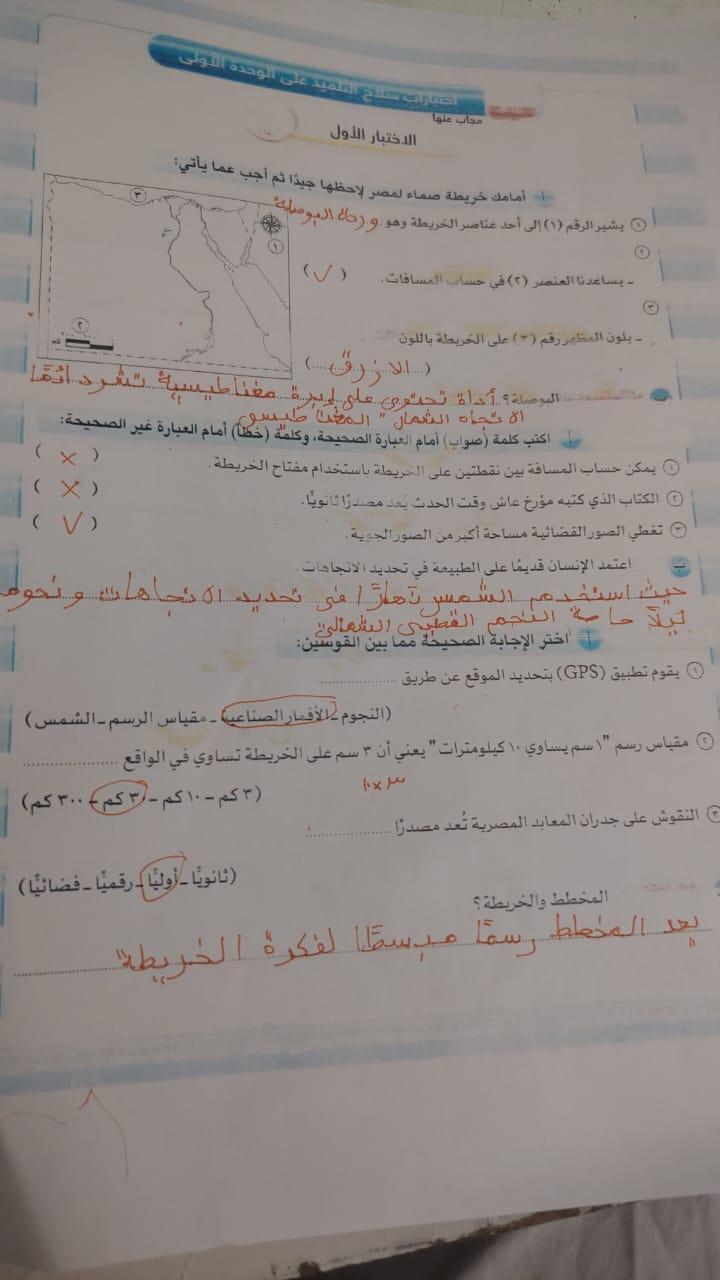 اختبارات سلاح التلميذ على الوحدة الأولى
مجاب عنها
الاختبار الأول
أ أمامك خريطة صماء لمصر لاحظها جيدًا ثم أجب عما يأتي:
١ يشير الرقم (١) إلى أحد عناصر الخريطة وهو وردة البوصلة
٢
- يساعدنا العنصر (٢) في حساب المسافات. (✓)
٣
- يلون المظهر رقم (٣) على الخريطة باللون
(الازرق)
٣
١
٢
كم
البوصلة؟ أداة تحتوى على إبرة مغناطيسية تشر دائمًا
الاتجاه الشمال المغناطيسى
أ اكتب كلمة (صواب) أمام العبارة الصحيحة، وكلمة (خطأ) أمام العبارة غير الصحيحة:
١ يمكن حساب المسافة بين نقطتين على الخريطة باستخدام مفتاح الخريطة. (×)
٢ الكتاب الذي كتبه مؤرخ عاش وقت الحدث يُعد مصدرًا ثانويًا. (×)
٣ تغطي الصور الفضائية مساحة أكبر من الصور الجوية. (✓)
ب اعتمد الإنسان قديمًا على الطبيعة في تحديد الاتجاهات.
حيث استخدم الشمس نهارًا فى تحديد الاتجاهات ونجوم
ليلًا خاصة النجم القطبى الشمالى
أ اختر الإجابة الصحيحة مما بين القوسين:
١ يقوم تطبيق (GPS) بتحديد الموقع عن طريق
(النجوم - الأقمار الصناعية - مقياس الرسم - الشمس)
٢ مقياس رسم "١ سم يساوي ١٠ كيلومترات" يعني أن ٣ سم على الخريطة تساوي في الواقع
١٠×٣
(٣ كم - ١٠ كم - ٣٠ كم - ٣٠٠ كم)
٣ النقوش على جدران المعابد المصرية تُعد مصدرًا
(ثانويًا - أوليًا - رقميًا - فضائيًا)
المخطط والخريطة؟
يعد المخطط رسمًا مبسطًا لفكرة الخريطة